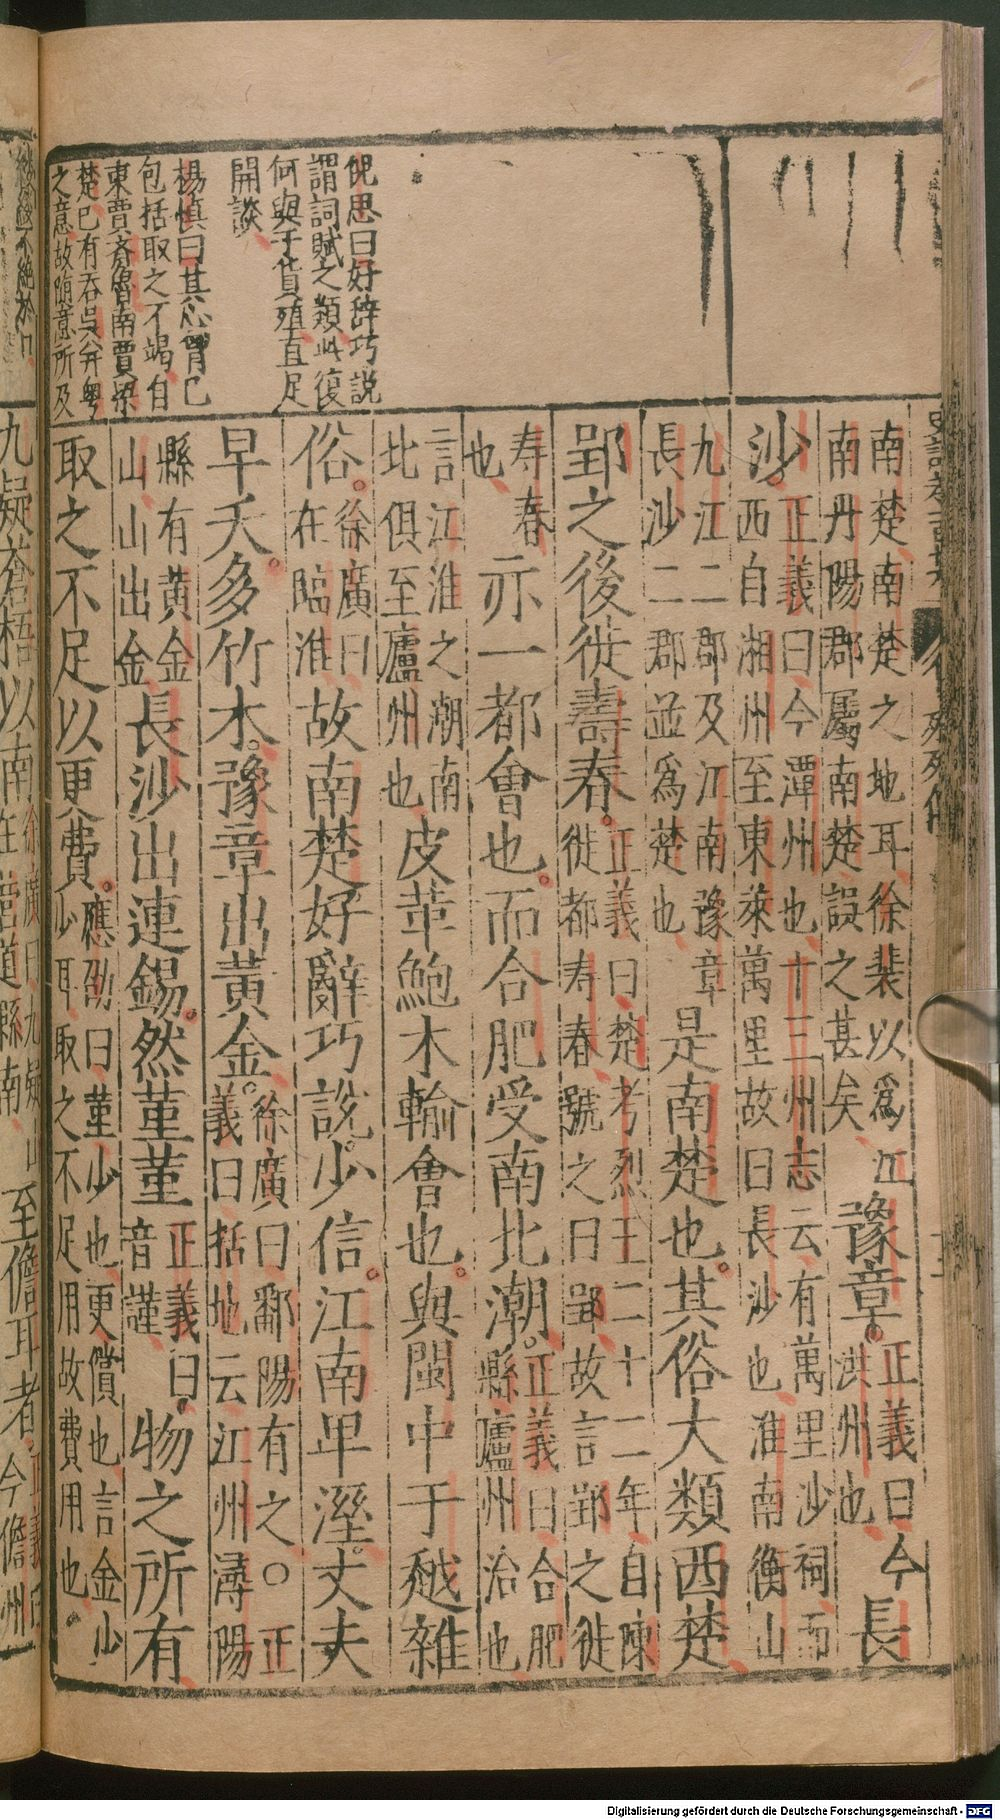 倪思曰好辞巧説
謂詞賦之類此復
何與于貨殖直足
開談
楊慎曰其心胷已
包括取之不竭自
東賈齊魯南賈梁
楚已有吞吳并粤
之意故随意所及
南楚南楚之地耳徐裴以爲江
南丹陽郡屬南楚誤之甚矣
豫章
正義曰今
洪州也
長
沙
正義曰今潭州也十三州志云有萬里沙祠而
西自湘州至東萊萬里故曰長沙也淮南衡山
九江二郡及江南豫章
長沙二郡並爲楚也
是南楚也其俗大類西楚
郢之後徙壽春
正義曰楚考烈王二十二年自陳
徙都寿春號之曰郢故言郢之徙
寿春
也
亦一都會也而合肥受南北潮
正義曰合肥
縣廬州治也
言江淮之潮南
北俱至廬州也
皮革鮑木輸會也與閩中于越雜
俗
徐廣曰
在臨淮
故南楚好辭巧説少信江南卑溼丈夫
早夭多竹木豫章出黃金
徐廣曰鄱陽有之○正
義曰括地云江州潯陽
縣有黃金
山山出金
長沙出連錫然堇堇
正義曰
音謹
物之所有
取之不足以更費
應劭曰堇少也更償也言金少
少耳取之不足用故費用也
九疑蒼梧以南
徐廣曰九疑山
在營道縣南
至儋耳者
正義曰
今儋州
Digitalisierung gefördert durch die Deutsche Forschungsgemeinschaft - DFG